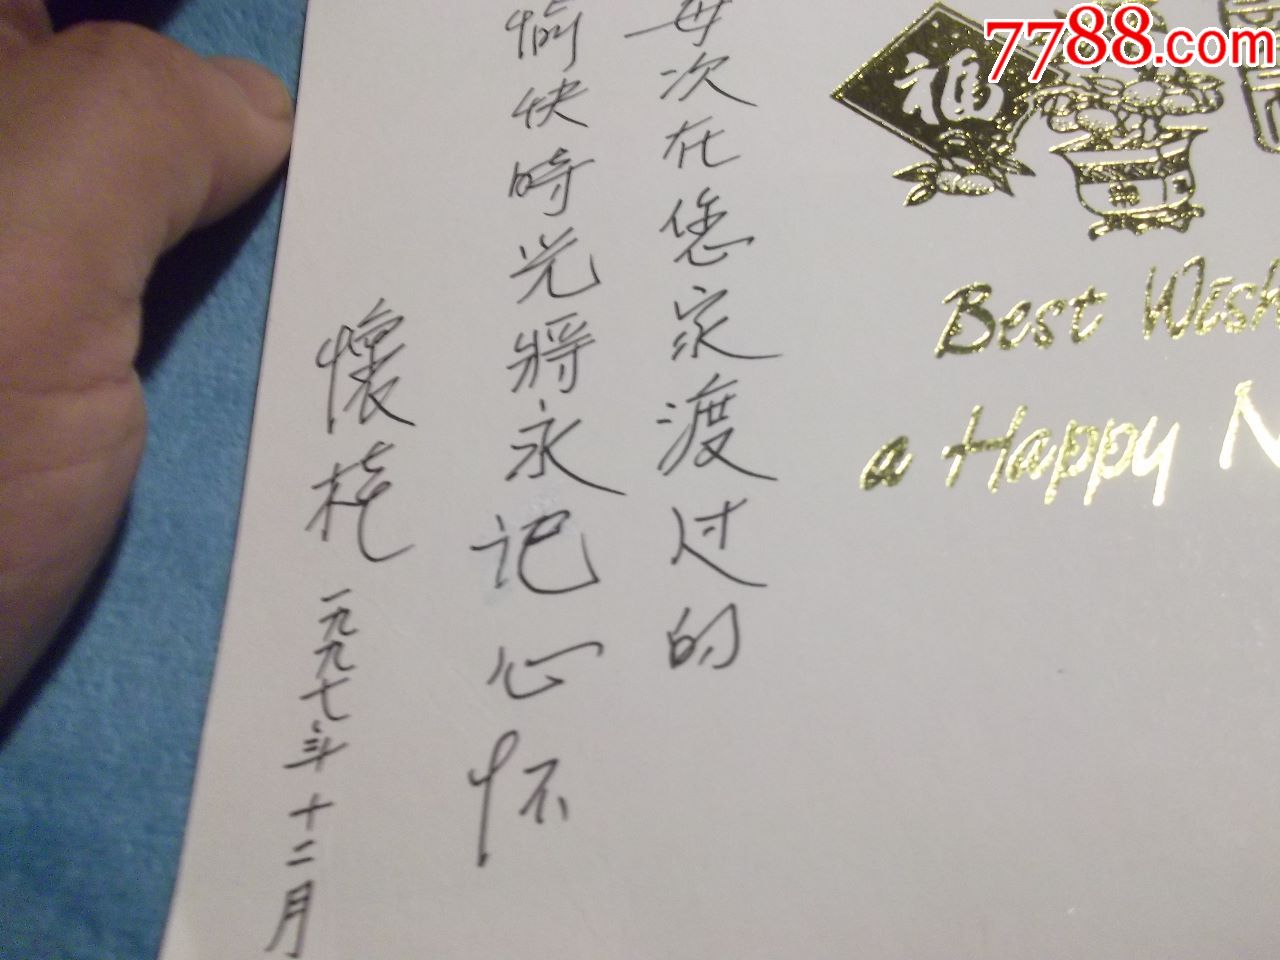 7788.com
福
Best Wish
a Happy N
每次在您家渡过的
愉快時光將永记心怀
懷
一九九七年十二月